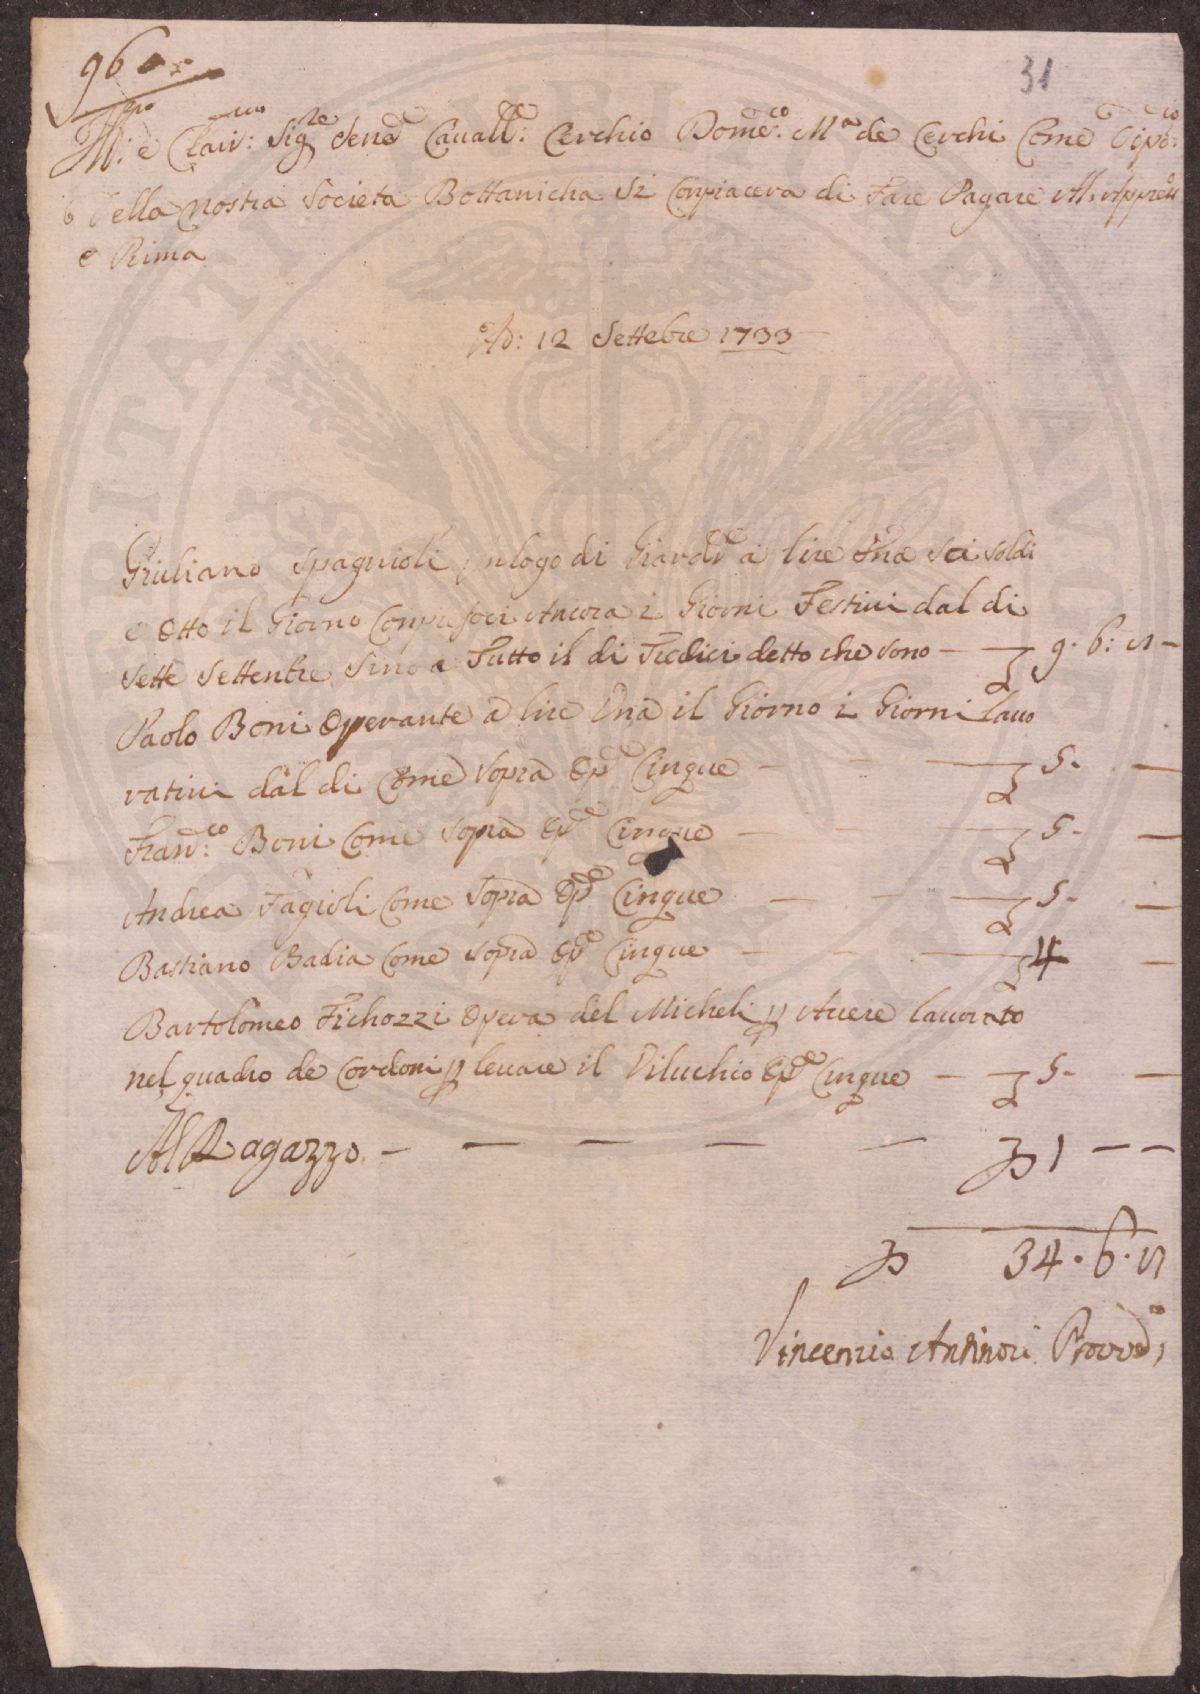 96
31
Ill.mo e Clariss.mo Sig.re Sen.e Cavall.e: Cerchio Dome.co: M.a de Cerchi Come Dipo.rio:
Della nostra Società Bottanicha Si Conpiacera di Fare Pagare All Appress
e Rima
A.o D: 12 Settebre 1733
Giuliano Spagnioli in logo di Giard.e a lire Una Sei Soldi
e Otto il Giorno Conpresoci Ancora i Giorni Festivi dal di
Sette Settenbre Sino a Tutto il di Tredici detto che sono — 9. 6: 8 —
Paolo Boni Operante a lire Una il Giorno i Giorni lavo
rativi dal di Come Sopra Op.e Cinque — 5. —
Fran.co: Boni Come Sopra Op.e Cinque — 5. —
Andrea Fagioli Come Sopra Op.e Cinque — 5. —
Bastiano Badia Come Sopra Op.e Cinque — 4 —
Bartolomeo Fichozzi Opera del Micheli p Avere lavorato
nel quadro de Cordoni p levare il Viluchio Op.e Cinque — 5. —
Al Ragazzo — — — — — 1 — —
34. 6. 8
Vincenzio Antinori Provved.e